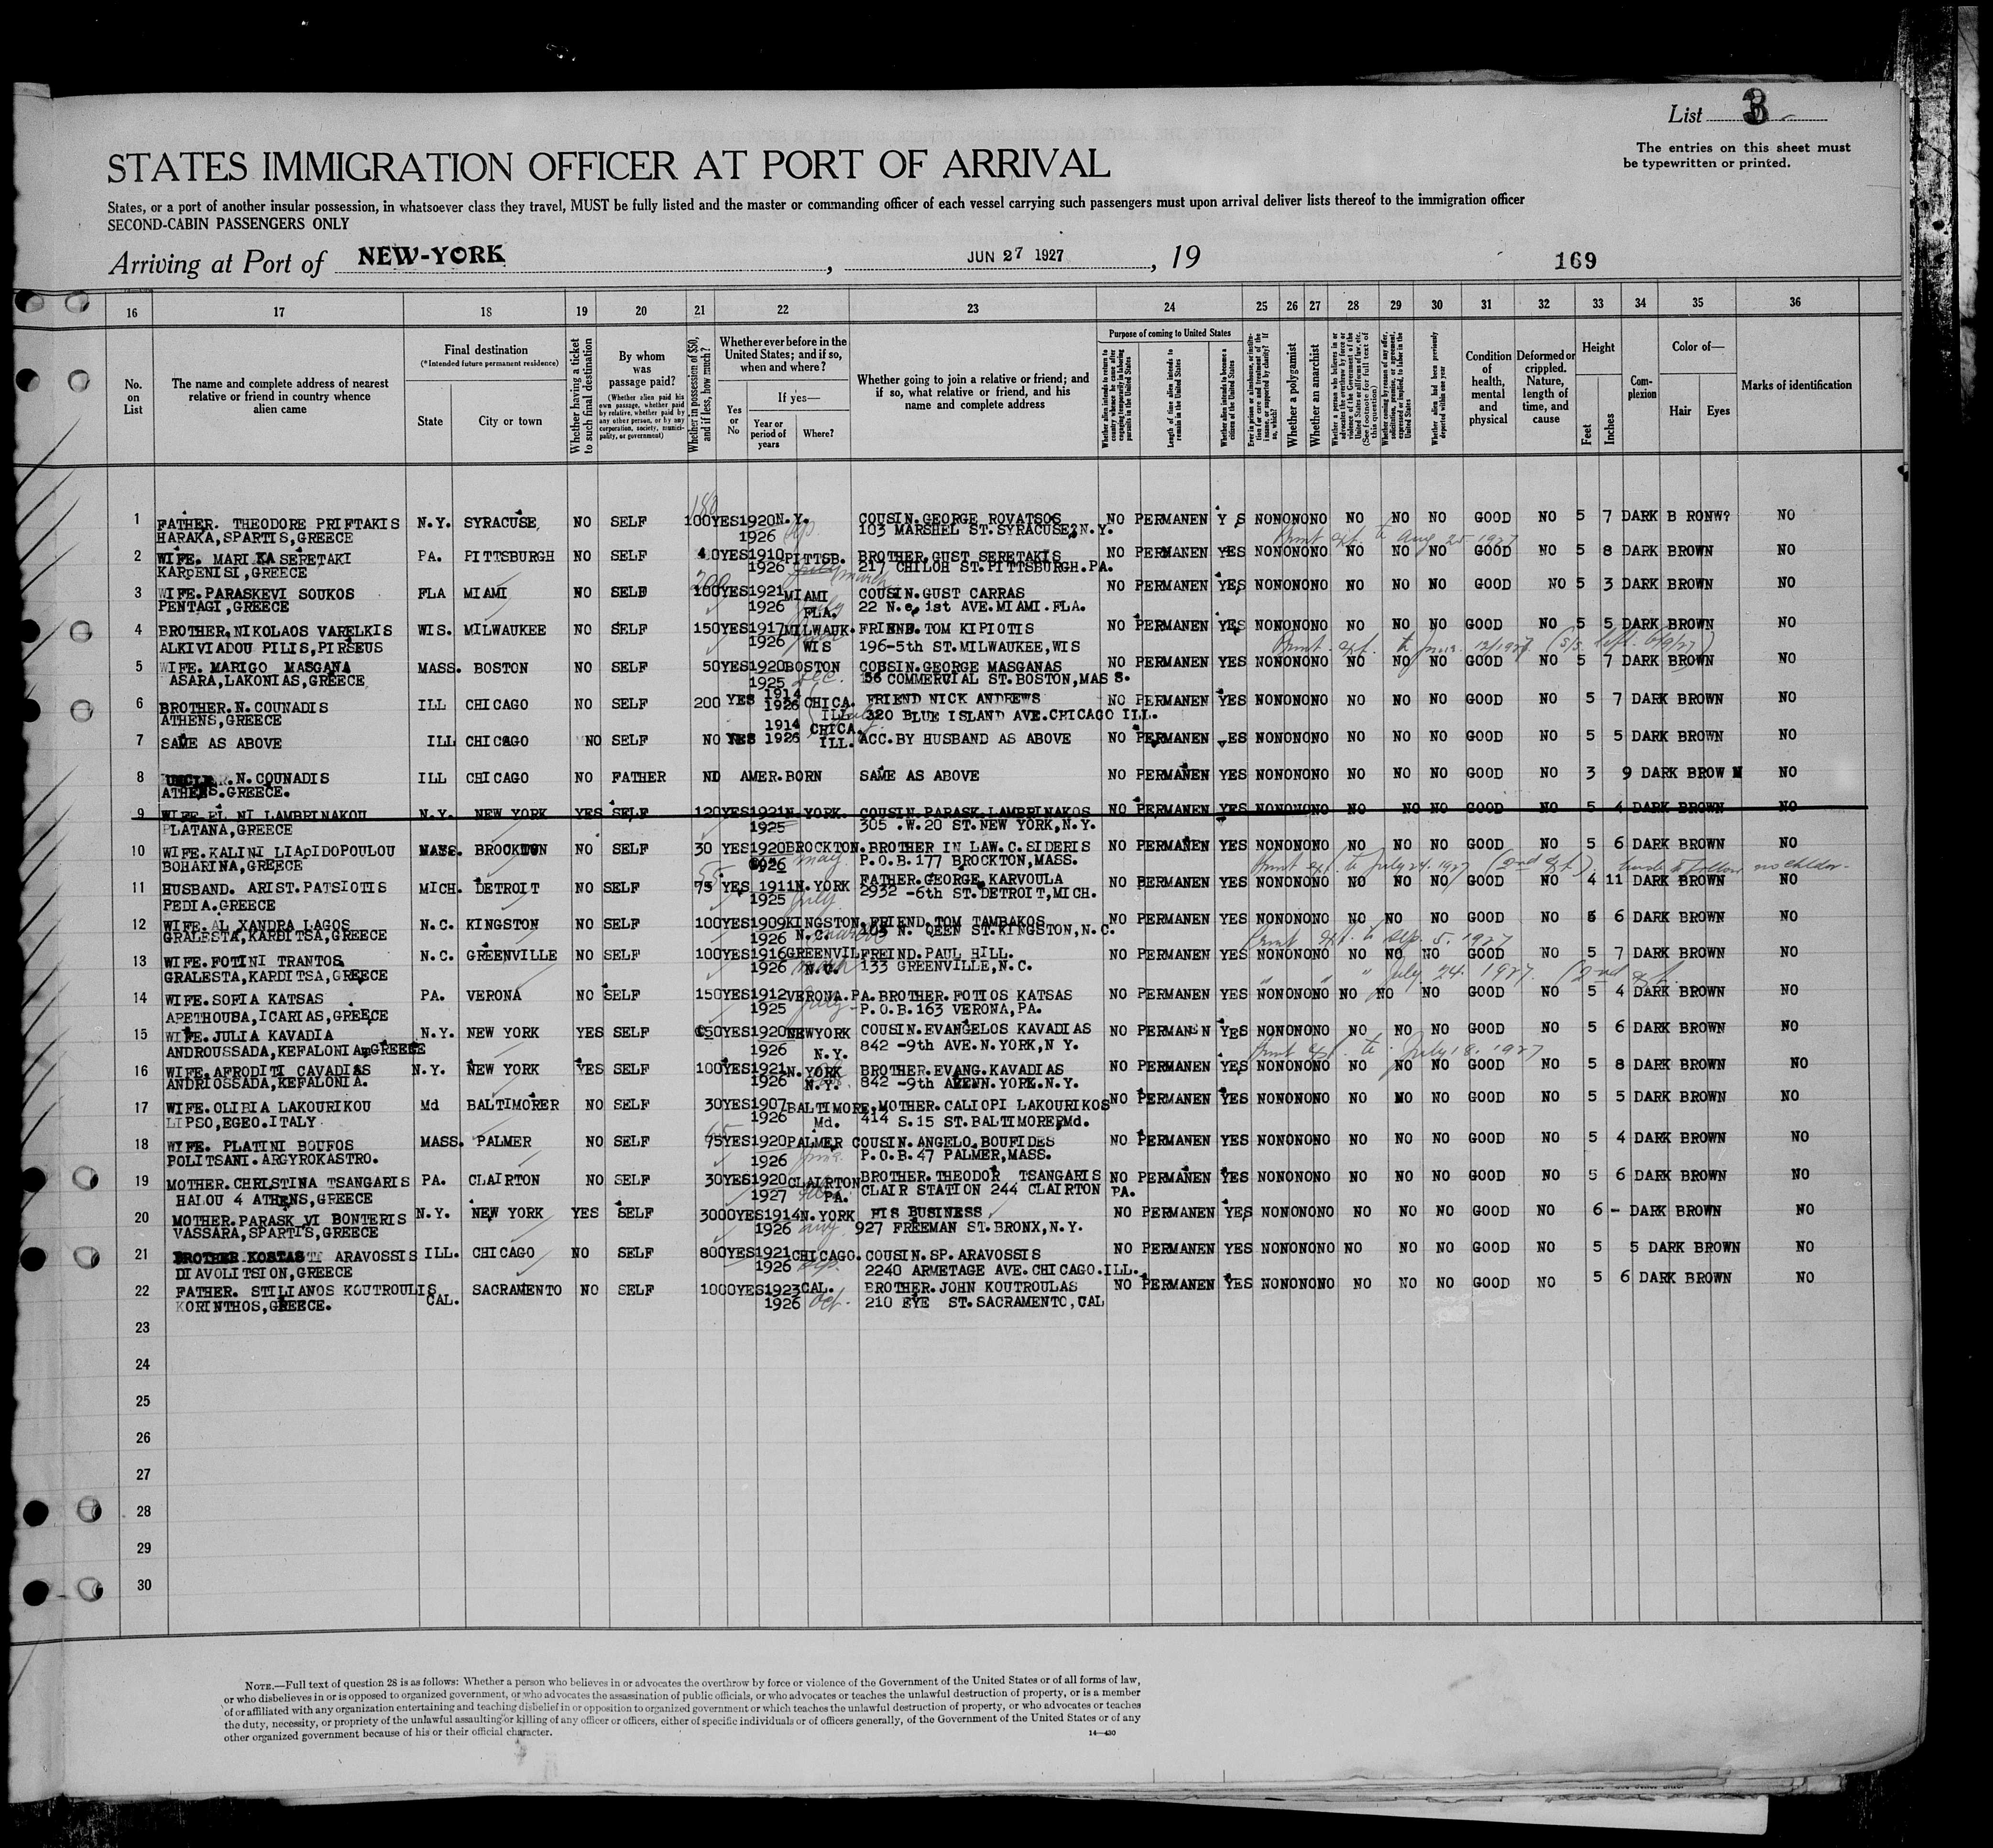 List 3
The entries on this sheet must
be typewritten or printed.
STATES IMMIGRATION OFFICER AT PORT OF ARRIVAL
States, or a port of another insular possession, in whatsoever class they travel, MUST be fully listed and the master or commanding officer of each vessel carrying such passengers must upon arrival deliver lists thereof to the immigration officer
SECOND-CABIN PASSENGERS ONLY
Arriving at Port of NEW-YORK , JUN 27 1927 , 19 169
16 17 18 19 20 21 22 23 24 25 26 27 28 29 30 31 32 33 34 35 36
No. on List
The name and complete address of nearest relative or friend in country whence alien came
Final destination
(*Intended future permanent residence)
State City or town
Whether having a ticket to such final destination
By whom was passage paid?
(Whether alien paid his own passage, whether paid by relative, whether paid by any other person, or by any corporation, society, municipality, or government)
Whether in possession of $50, and if less, how much?
Whether ever before in the United States; and if so, when and where?
Yes or No
If yes—
Year or period of years Where?
Whether going to join a relative or friend; and if so, what relative or friend, and his name and complete address
Purpose of coming to United States
Whether alien intends to return to country whence he came after engaging temporarily in laboring pursuits in the United States
Length of time alien intends to remain in the United States
Whether alien intends to become a citizen of the United States
Whether a polygamist
Whether an anarchist
Whether alien had been previously deported within one year
Condition of health, mental and physical
Deformed or crippled. Nature, length of time, and cause
Height
Feet Inches
Complexion
Color of—
Hair Eyes
Marks of identification
1 FATHER. THEODORE PRIFTAKIS N.Y. SYRACUSE NO SELF 100 YES 1920 N.Y. COUSIN.GEORGE ROVATSOS NO PERMANEN Y S NO NO NO NO NO NO GOOD NO 5 7 DARK B RONW? NO
HARAKA,SPARTIS,GREECE 1926 103 MARSHEL ST.SYRACUSE,N.Y.
2 WIFE. MARI KA SERETAKI PA. PITTSBURGH NO SELF 40 YES 1910 PITTSB. BROTHER.GUST SERETAKIS NO PERMANEN YES NO NO NO NO NO NO GOOD NO 5 8 DARK BROWN NO
KARPENISI,GREECE 1926 217 CHILOH ST.PITTSBURGH.PA.
3 WIFE.PARASKEVI SOUKOS FLA MIAMI NO SELF 100 YES 1921 MIAMI COUSIN.GUST CARRAS NO PERMANEN YES NO NO NO NO NO NO GOOD NO 5 3 DARK BROWN NO
PENTAGI,GREECE 1926 FLA. 22 N.e. 1st AVE.MIAMI.FLA.
4 BROTHER.NIKOLAOS VARELKIS WIS. MILWAUKEE NO SELF 150 YES 1917 MILWAUK. FRIEND.TOM KIPIOTIS NO PERMANEN YES NO NO NO NO NO NO GOOD NO 5 5 DARK BROWN NO
ALKIVIADOU PILIS,PIRSEUS 1926 WIS 196-5th ST.MILWAUKEE,WIS
5 WIFE. MARIGO MASGANA MASS. BOSTON NO SELF 50 YES 1920 BOSTON COUSIN.GEORGE MASGANAS NO PERMANEN YES NO NO NO NO NO NO GOOD NO 5 7 DARK BROWN NO
ASARA,LAKONIAS,GREECE 1925 Dec. 56 COMMERCIAL ST.BOSTON,MAS S.
6 BROTHER.N.COUNADIS ILL CHICAGO NO SELF 200 YES 1914 CHICA. FRIEND NICK ANDREWS NO PERMANEN YES NO NO NO NO NO NO GOOD NO 5 7 DARK BROWN NO
ATHENS,GREECE 1926 ILL 320 BLUE ISLAND AVE.CHICAGO ILL.
7 SAME AS ABOVE ILL CHICAGO NO SELF NO YES 1914 1926 CHICA. ILL. ACC.BY HUSBAND AS ABOVE NO PERMANEN YES NO NO NO NO NO NO GOOD NO 5 5 DARK BROWN NO
8 UNCLE.N.COUNADIS ILL CHICAGO NO FATHER NO AMER.BORN SAME AS ABOVE NO PERMANEN YES NO NO NO NO NO NO GOOD NO 3 9 DARK BROW N NO
ATHENS.GREECE.
9 WIFE EL NI LAMBRINAKOU N.Y. NEW YORK YES SELF 120 YES 1921 N.YORK. COUSIN.PARASK.LAMBRINAKOS NO PERMANEN YES NO NO NO NO NO NO GOOD NO 5 4 DARK BROWN NO
PLATANA,GREECE 1925 305 .W.20 ST.NEW YORK,N.Y.
10 WIFE.KALINI LIApIDOPOULOU MASS. BROCKTON NO SELF 30 YES 1920 BROCKTON. BROTHER IN LAW.C.SIDERIS NO PERMANEN YES NO NO NO NO NO NO GOOD NO 5 6 DARK BROWN NO
BOHARINA,GREECE 1926 may P.O.B.177 BROCKTON,MASS.
11 HUSBAND. ARIST.PATSIOTIS MICH. DETROIT NO SELF 75 YES 1911 N.YORK FATHER.GEORGE KARVOULA NO PERMANEN YES NO NO NO NO NO NO GOOD NO 4 11 DARK BROWN NO
PEDIA.GREECE 1925 July 2932 -6th ST.DETROIT,MICH.
12 WIFE.AL XANDRA LAGOS N.C. KINGSTON NO SELF 100 YES 1909 KINGSTON. FRIEND.TOM TAMBAKOS NO PERMANEN YES NO NO NO NO NO NO GOOD NO 5 6 DARK BROWN NO
GRALESTA,KARDITSA,GREECE 1926 N.C. 103 N. QEEN ST.KINGSTON,N.C.
13 WIFE.FOTINI TRANTOS N.C. GREENVILLE NO SELF 100 YES 1916 GREENVIL FREIND.PAUL HILL. NO PERMANEN YES NO NO NO NO NO NO GOOD NO 5 7 DARK BROWN NO
GRALESTA,KARDITSA,GREECE 1926 N.C. 133 GREENVILLE,N.C.
14 WIFE.SOFIA KATSAS PA. VERONA NO SELF 150 YES 1912 VERONA.PA. BROTHER.FOTIOS KATSAS NO PERMANEN YES NO NO NO NO NO NO GOOD NO 5 4 DARK BROWN NO
APETHOUBA,ICARIAS,GREECE 1925 July P.O.B.163 VERONA,PA.
15 WIFE.JULIA KAVADIA N.Y. NEW YORK YES SELF 50 YES 1920 NEWYORK COUSIN.EVANGELOS KAVADIAS NO PERMANEN YES NO NO NO NO NO NO GOOD NO 5 6 DARK BROWN NO
ANDROUSSADA,KEFALONIA,GREECE 1926 N.Y. 842 -9th AVE.N.YORK,N Y.
16 WIFE.AFRODITI CAVADIAS N.Y. NEW YORK YES SELF 100 YES 1921 N.YORK BROTHER.EVANG.KAVADIAS NO PERMANEN YES NO NO NO NO NO NO GOOD NO 5 8 DARK BROWN NO
ANDRIOSSADA,KEFALONIA. 1926 N.Y. 842 -9th YORK.N.Y.
17 WIFE.OLIBIA LAKOURIKOU Md BALTIMORER NO SELF 30 YES 1907 BALTIMORE. MOTHER.CALIOPI LAKOURIKOS NO PERMANEN YES NO NO NO NO NO NO GOOD NO 5 5 DARK BROWN NO
LIPSO,EGEO.ITALY 1926 Md. 414 S.15 ST.BALTIMORE,Md.
18 WIFE. PLATINI BOUFOS MASS. PALMER NO SELF 75 YES 1920 PALMER COUSIN.ANGELO.BOUFIDES NO PERMANEN YES NO NO NO NO NO NO GOOD NO 5 4 DARK BROWN NO
POLITSANI.ARGYROKASTRO. 1926 P.O.B.47 PALMER,MASS.
19 MOTHER.CHRISTINA TSANGARIS PA. CLAIRTON NO SELF 30 YES 1920 CLAIRTON BROTHER.THEODOR TSANGARIS NO PERMANEN YES NO NO NO NO NO NO GOOD NO 5 6 DARK BROWN NO
HALOU 4 ATHENS,GREECE 1927 PA. CLAIR STATION 244 CLAIRTON PA.
20 MOTHER.PARASK VI BONTERIS N.Y. NEW YORK YES SELF 3000 YES 1914 N.YORK HIS BUSINESS NO PERMANEN YES NO NO NO NO NO NO GOOD NO 6 - DARK BROWN NO
VASSARA,SPARTIS,GREECE 1926 aug 927 FREEMAN ST.BRONX,N.Y.
21 BROTHER KOSTAS ARAVOSSIS ILL. CHICAGO NO SELF 800 YES 1921 CHICAGO. COUSIN.SP.ARAVOSSIS NO PERMANEN YES NO NO NO NO NO NO GOOD NO 5 5 DARK BROWN NO
DIAVOLITSION,GREECE 1926 Sep. 2240 ARMETAGE AVE.CHICAGO.ILL.
22 FATHER. STILIANOS KOUTROULIS CAL. SACRAMENTO NO SELF 1000 YES 1923 CAL. BROTHER.JOHN KOUTROULAS NO PERMANEN YES NO NO NO NO NO NO GOOD NO 5 6 DARK BROWN NO
KORINTHOS,GREECE. 1926 Oct. 210 EYE ST.SACRAMENTO,CAL
23
24
25
26
27
28
29
30
NOTE.—Full text of question 28 is as follows: Whether a person who believes in or advocates the overthrow by force or violence of the Government of the United States or of all forms of law,
or who disbelieves in or is opposed to organized government, or who advocates the assassination of public officials, or who advocates or teaches the unlawful destruction of property, or is a member
of or affiliated with any organization entertaining and teaching disbelief in or opposition to organized government or which teaches the unlawful destruction of property, or who advocates or teaches
the duty, necessity, or propriety of the unlawful assaulting or killing of any officer or officers, either of specific individuals or of officers generally, of the Government of the United States or of any
other organized government because of his or their official character.
14—430